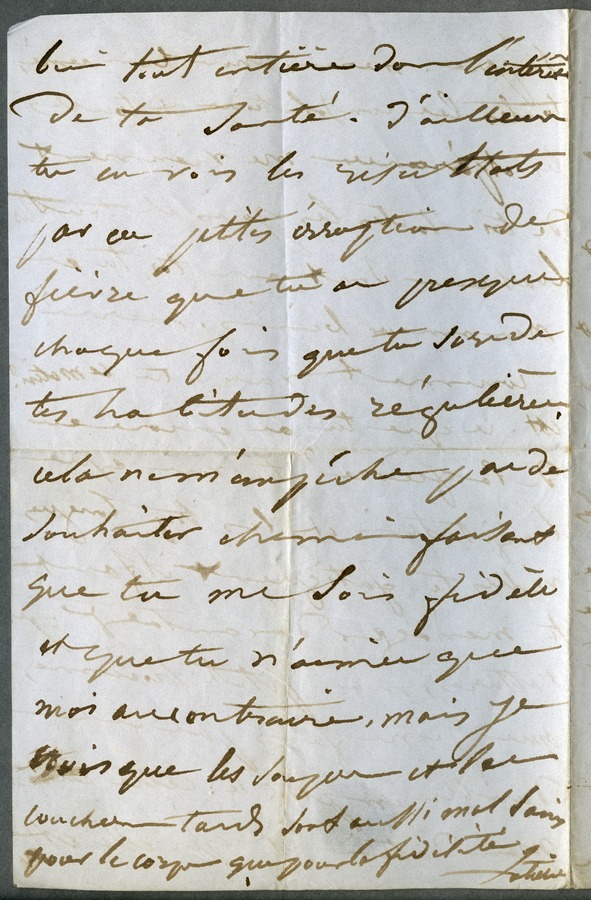 bien tout entière dans l'intérêt
de ta santé. D'ailleurs
tu en vois les résultats
par ces petites érruption de
fièvre que tu as presque
chaque fois que tu sors de
tes habitudes régulières,
cela ne m'empêche pas de
souhaiter chemin faisant
que tu me sois fidèle
et que tu n'aimes que
moi au contraire, mais je
crois que les soupers et les
couchers tards sont aussi mal sains
pour le corps que pour la fidélité
Juliette